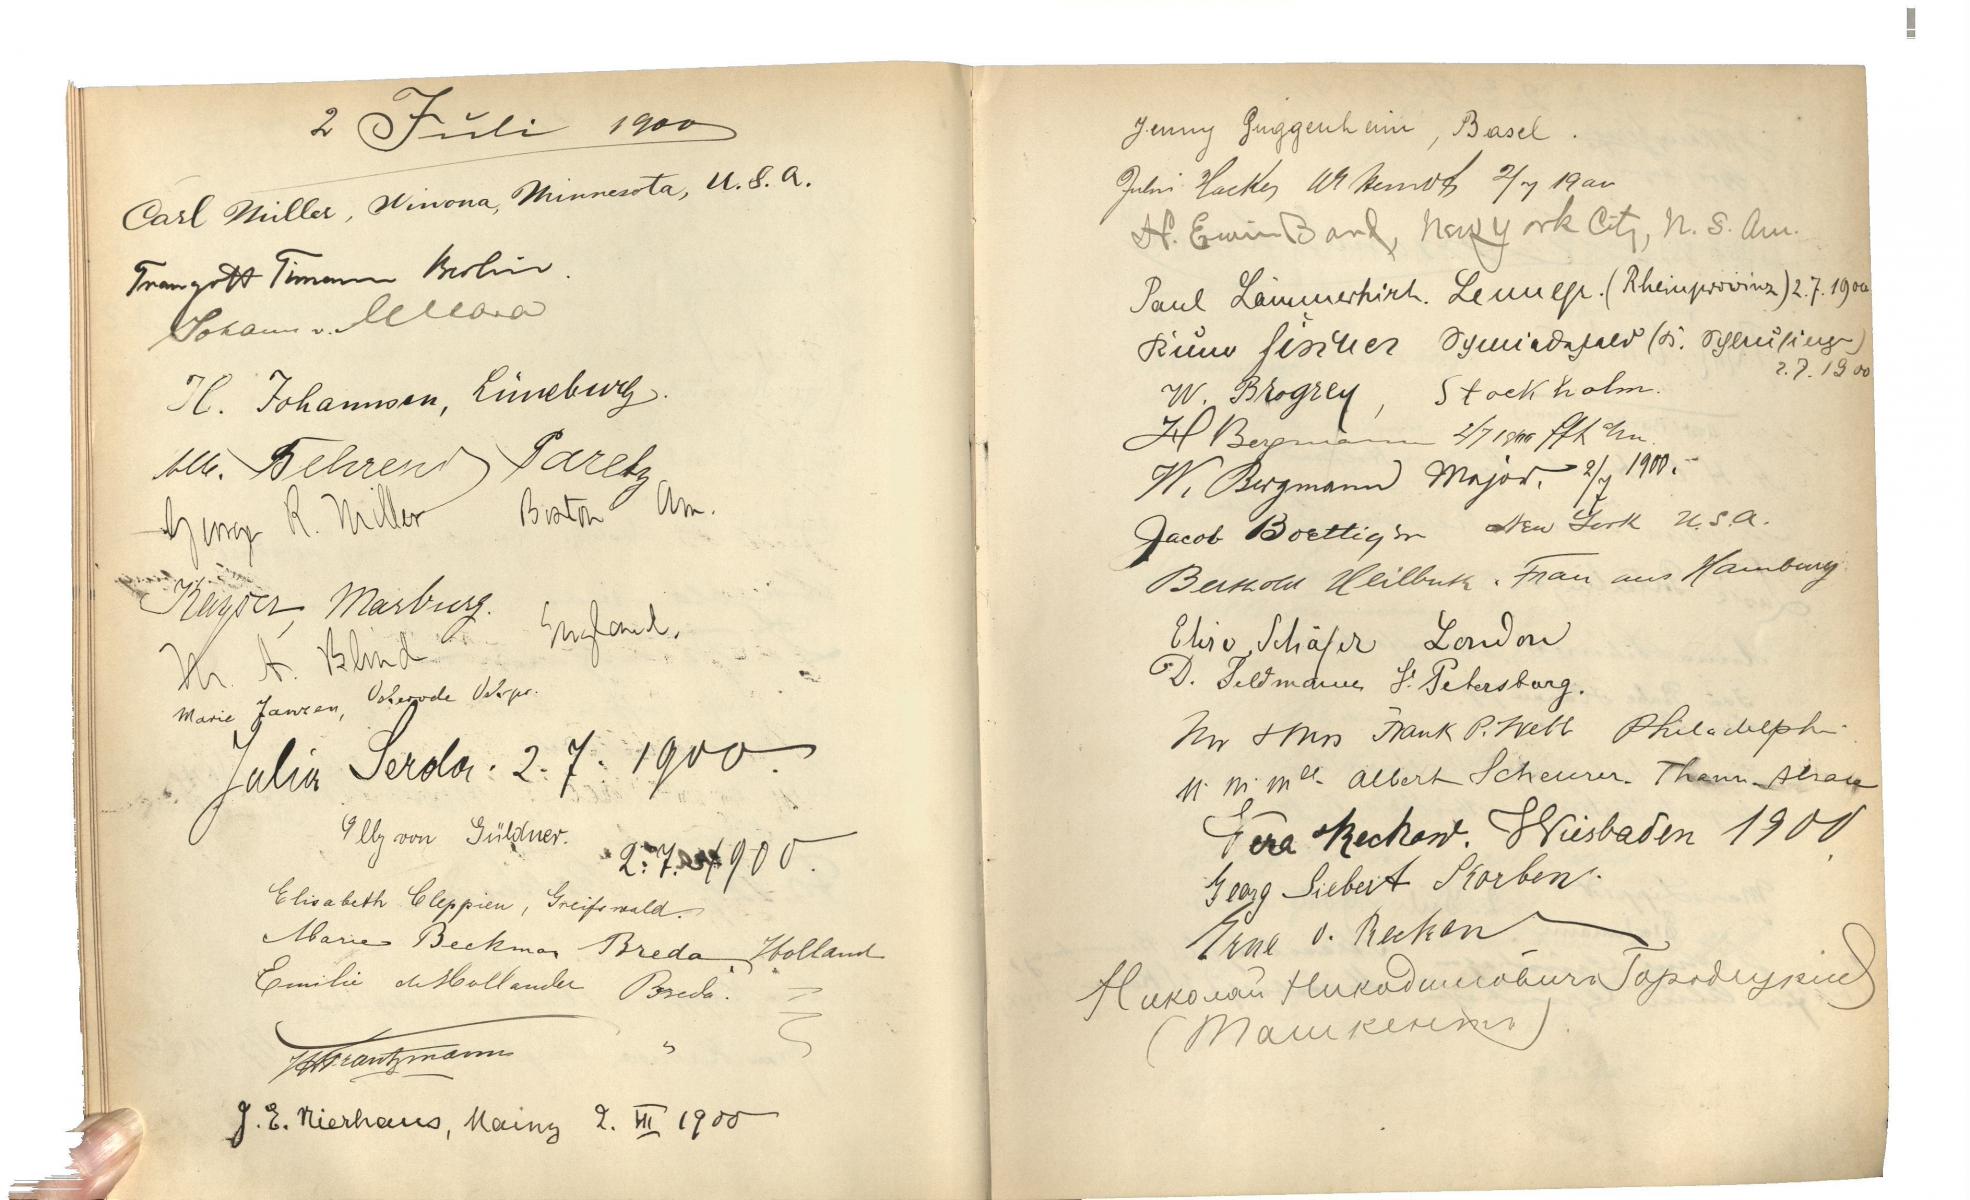 2 Juli 1900
Carl Müller, Winona, Minnesota, U.S.A.
Traugott Timann Berlin.
Johann v.
H. Johannsen, Lüneburg.
Behrend Paretz
George R. Miller Boston Am.
Kayser, Marburg.
A. Blind England.
Marie Janzen,
Julia Serda. 2.7.1900.
Elly von Güldner.
2.7.1900.
Elisabeth Cleppien, Greifswald.
Marie Beckman Breda. Holland
Emilie Breda.
"
J. E. Nierhaus, Mainz 2. VII 1900
Jenny Guggenheim, Basel.
Hacker 2/7 1900
H. Erwin Bard, New York City, N. S. Am.
Paul Lämmerhirt. Lennep. (Rheinprovinz) 2.7.1900
Kuno Fischer
2.7.1900
W. Brogrey, Stockholm.
H Bergmann 2/7 1900
W. Bergmann Major. 2/7 1900.
Jacob Boettiger New York U.S.A.
Berthold Heilbut u. Frau aus Hamburg
Schäfer London
D. Feldmann St. Petersburg.
Mr & Mrs Frank P. Webb
Albert Scheurer. Thann
Vera Reckow. Wiesbaden 1900
Georg Siebert
v. Reckow
Николай Никодимовичъ
(Ташкентъ)